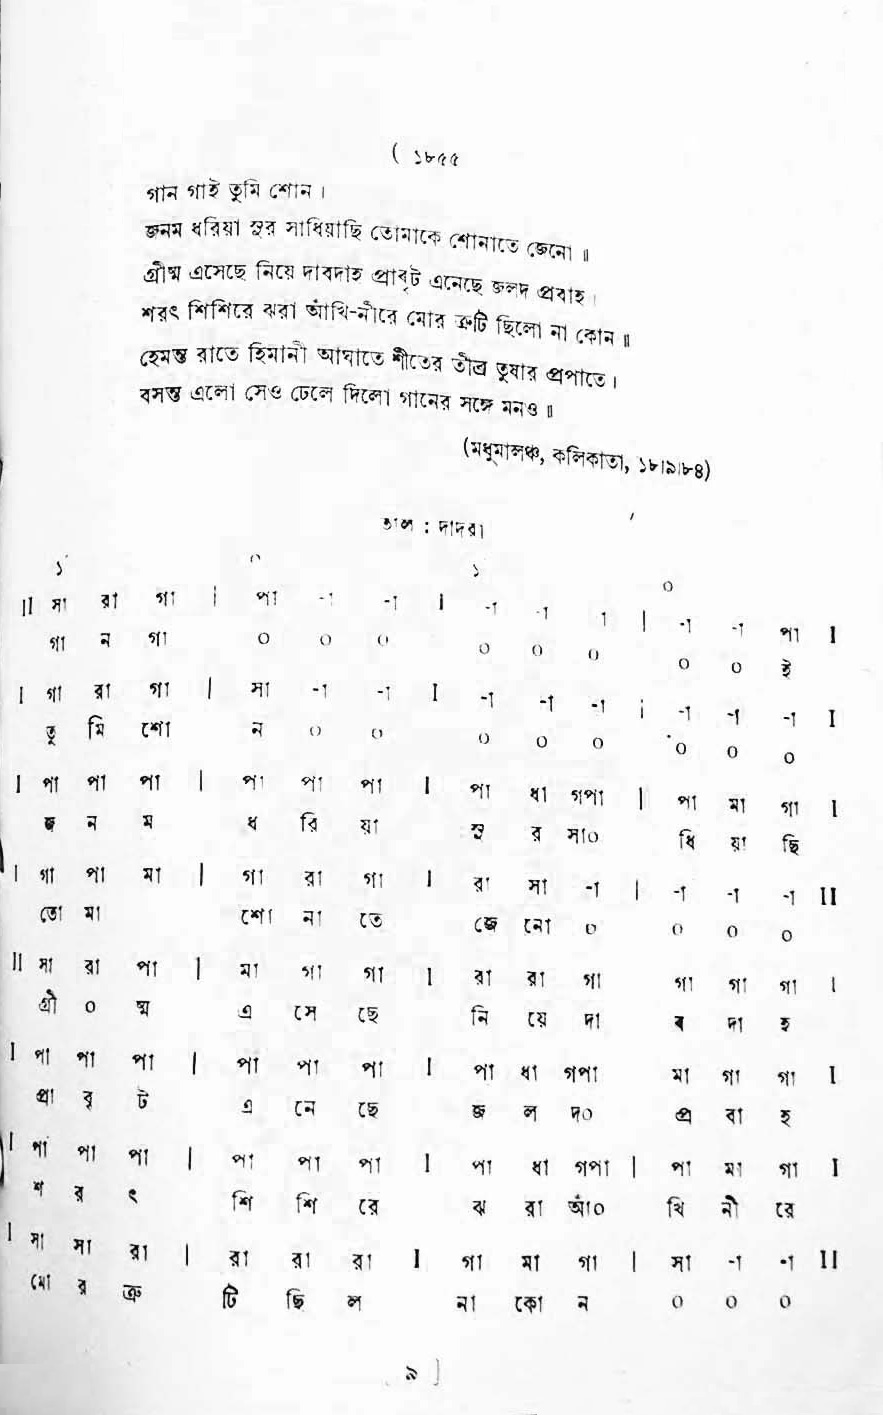 ( ১৮৫৫
গান গাই তুমি শোন ।
জনম ধরিয়া সুর সাধিয়াছি তোমাকে শোনাতে জেনো ॥
গ্রীষ্ম এসেছে নিয়ে দাবদাহ প্রাবৃট এনেছে জলদ প্রবাহ ।
শরৎ শিশিরে ঝরা আঁখি-নীরে মোর ত্রুটি ছিলো না কোন ॥
হেমন্ত রাতে হিমানী আঘাতে শীতের তীব্র তুষার প্রপাতে ।
বসন্ত এলো সেও ঢেলে দিলো গানের সঙ্গে মনও ॥
(মধুমালঞ্চ, কলিকাতা, ১৮।৯।৮৪)
তাল : দাদরা
১´ ০ ১ ০
II সা রা গা | পা -া -া I -া -া া | -া -া পা I
গা ন গা ০ ০ ০ ০ ০ ০ ০ ০ ই
I গা রা গা | সা -া -া I -া -া -া | -া -া -া I
তু মি শো ন ০ ০ ০ ০ ০ ০ ০ ০
I পা পা পা | পা পা পা I পা ধা গপা | পা মা গা I
জ ন ম ধ রি য়া সু র সা০ ধি য়া ছি
I গা পা মা | গা রা গা I রা সা -া | -া -া -া II
তো মা শো না তে জে নো ০ ০ ০ ০
II সা রা পা | মা গা গা I রা রা গা গা গা গা I
গ্রী ০ ষ্ম এ সে ছে নি য়ে দা ব দা হ
I পা পা পা | পা পা পা I পা ধা গপা মা গা গা I
প্রা বৃ ট এ নে ছে জ ল দ০ প্র বা হ
I পা পা পা | পা পা পা I পা ধা গপা | পা মা গা I
শ র ৎ শি শি রে ঝ রা আঁ০ খি নী রে
I সা সা রা | রা রা রা I গা মা গা | সা -া -া II
মো র ত্রু টি ছি ল না কো ন ০ ০ ০
৯ ]